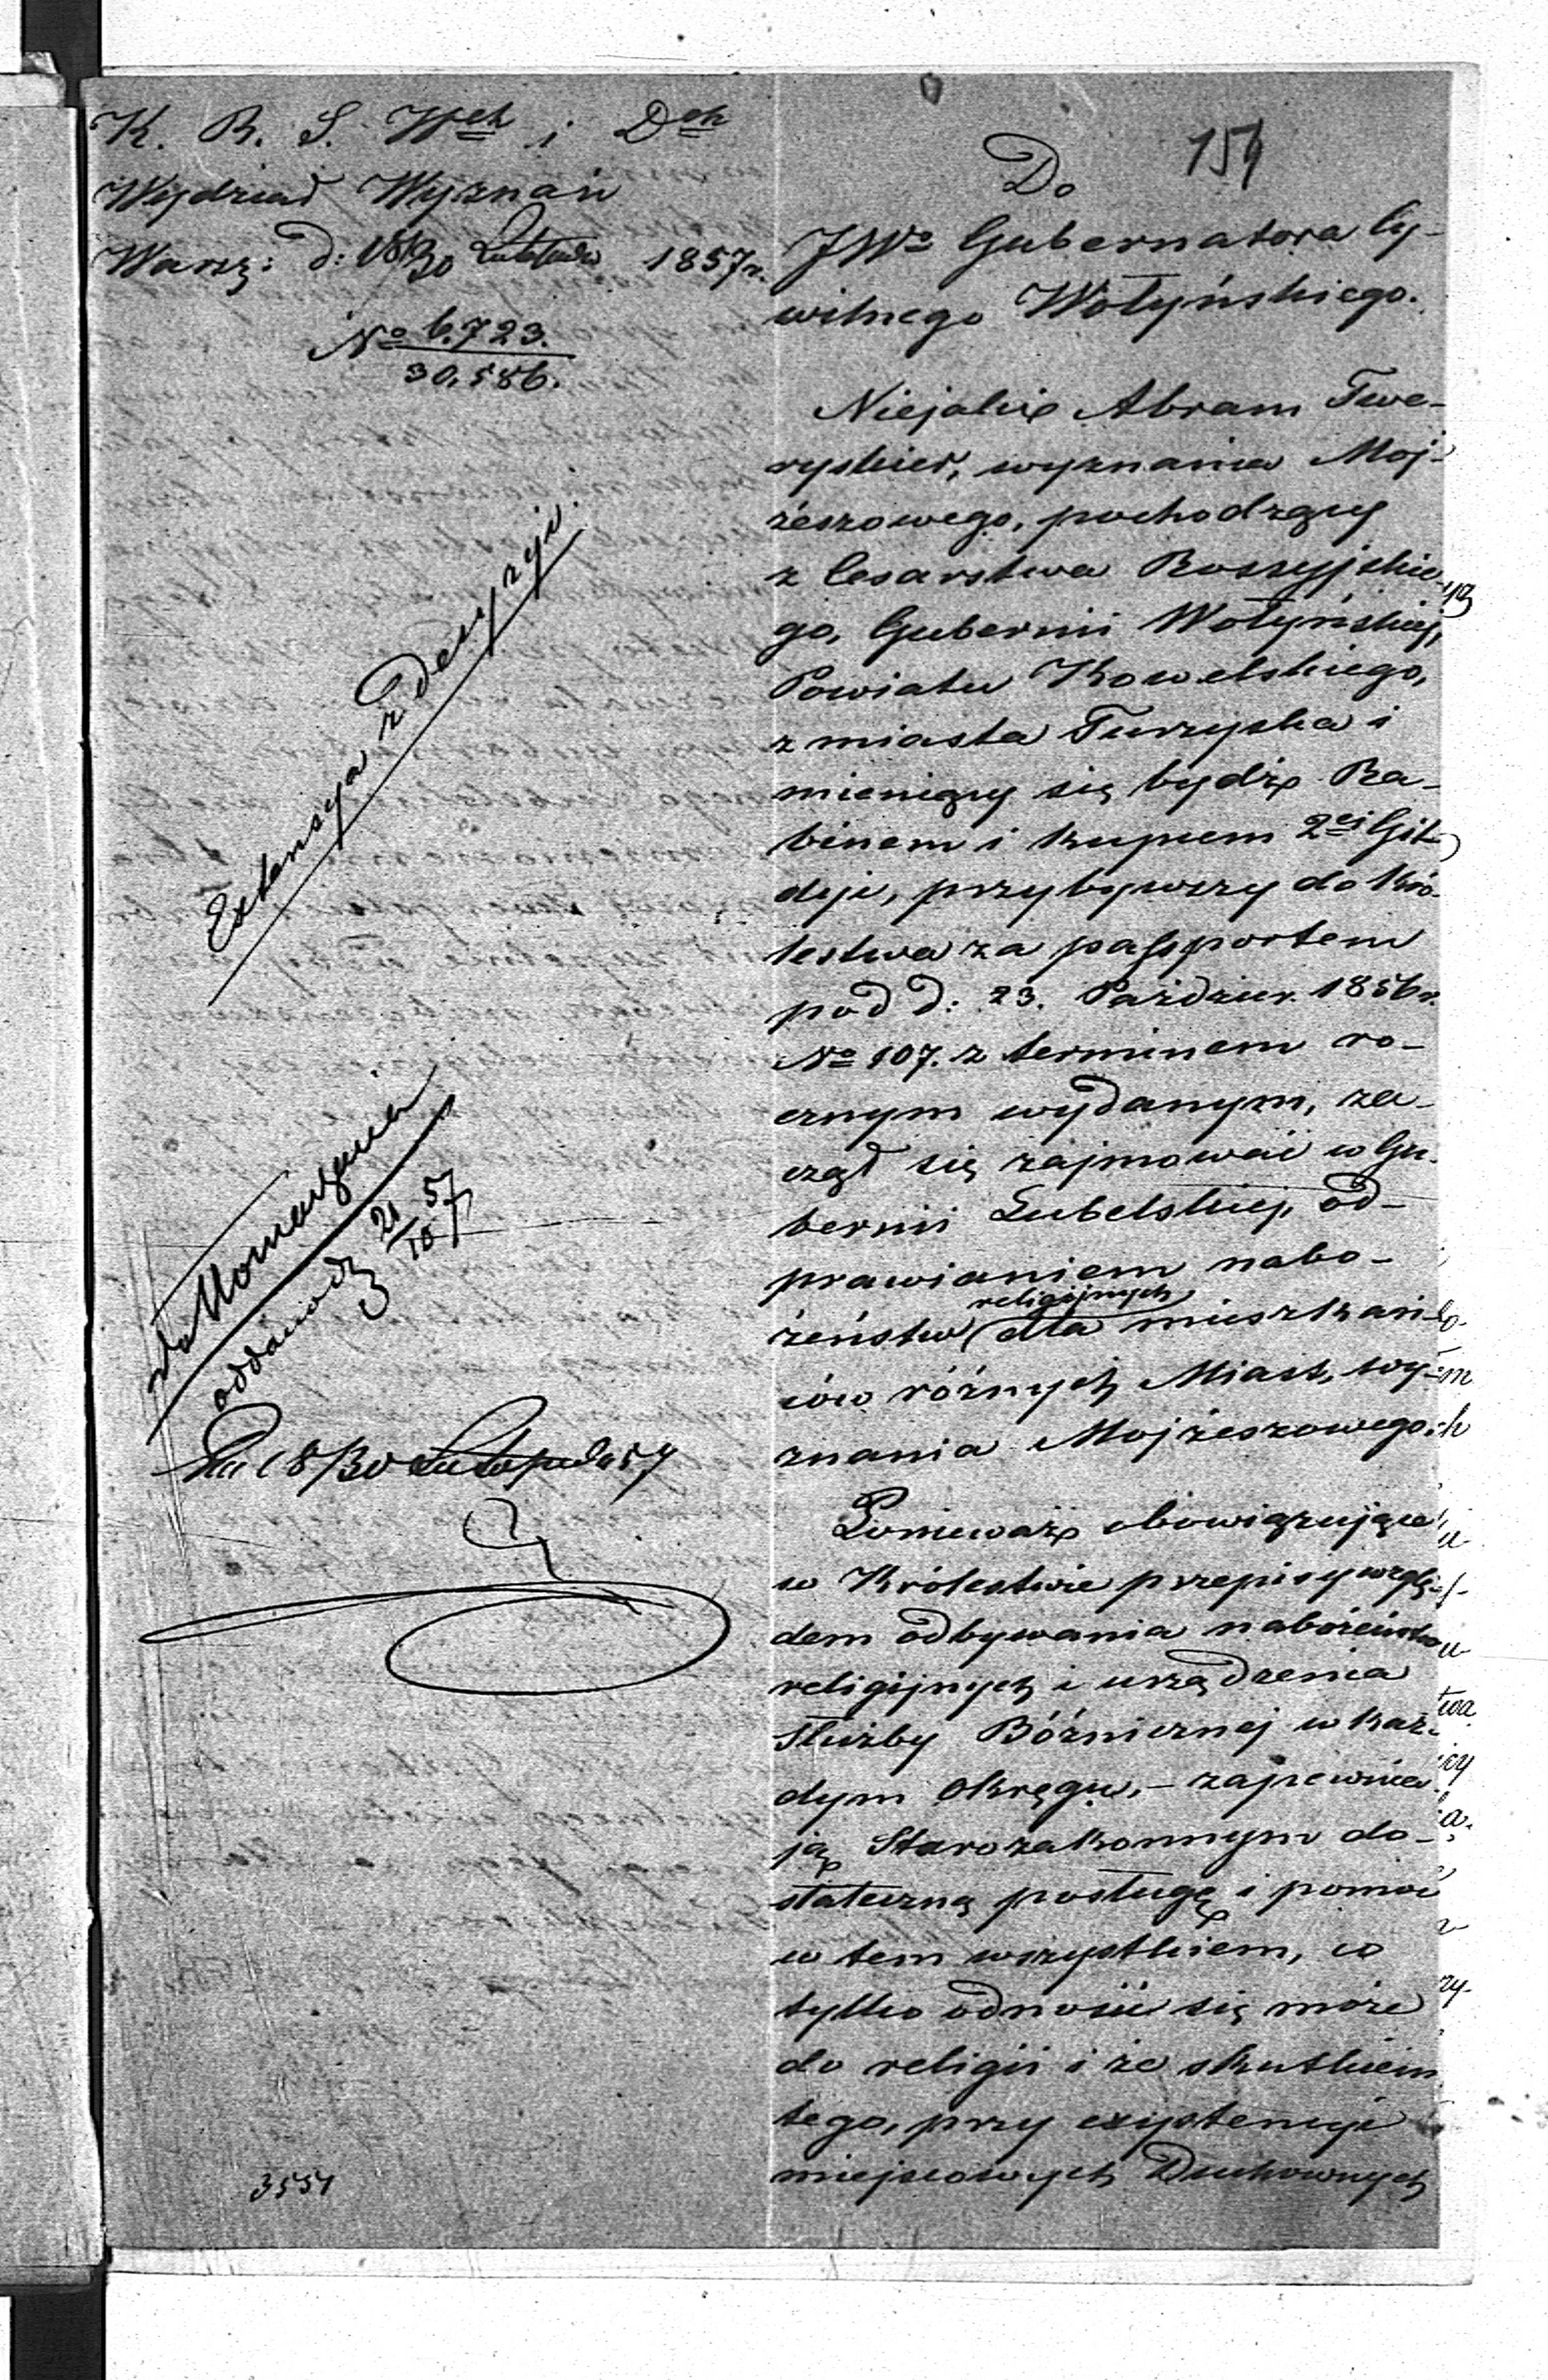 K. R. S. Wch i Dch
Wydział Wyznań
Warsz: d: 18/30 1857 r.
No 6.723.
30,586.
Extensya z decyzyi.
oddano d 21/10 57
18/30 Listopada 57
3554
154
Do
JWo Gubernatora Cy-
wilnego Wołyńskiego.
Niejakiś Abram Twe-
ryskier, wyznania Moj-
żeszowego, pochodzący
z Cesarstwa Rossyjskie-
go, Gubernii Wołyńskiej,
Powiatu Kowelskiego,
z miasta Turzyska i
mieniący się bydź Ra-
binem i kupcem 2ei Gil-
dyi, przybywszy do Kró-
lestwa za passportem
pod d: 23. Paździer. 1856 r.
No 107. z terminem ro-
cznym wydanym, za-
czął się zajmować w Gu-
bernii Lubelskiej, od-
prawianiem nabo-
żeństw religijnych dla mieszkań-
ców różnych Miast, wy-
znania Mojżeszowego.
Ponieważ obowiązujące
w Królestwie przepisy wzglę-
dem odbywania nabożeństw
religijnych i urządzenia
służby Bóżnicznej w każ-
dym Okręgu, – zapewnia-
ją Starozakonnym do-
stateczną posługę i pomoc
w tem wszystkiem, co
tylko odnosić się może
do religii i że skutkiem
tego, przy exystencyi
miejscowych Duchownych